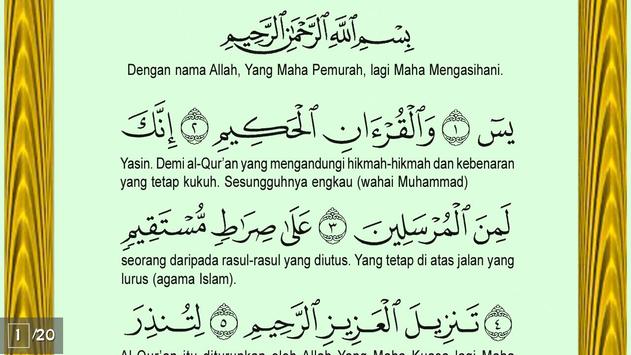 بِسْمِ ٱللَّهِ ٱلرَّحْمَٰنِ ٱلرَّحِيمِ
Dengan nama Allah, Yang Maha Pemurah, lagi Maha Mengasihani.
يسٓ ۝١ وَٱلْقُرْءَانِ ٱلْحَكِيمِ ۝٢ إِنَّكَ
Yasin. Demi al-Qur’an yang mengandungi hikmah-hikmah dan kebenaran
yang tetap kukuh. Sesungguhnya engkau (wahai Muhammad)
لَمِنَ ٱلْمُرْسَلِينَ ۝٣ عَلَىٰ صِرَٰطٍ مُّسْتَقِيمٍ
seorang daripada rasul-rasul yang diutus. Yang tetap di atas jalan yang
lurus (agama Islam).
۝٤ تَنزِيلَ ٱلْعَزِيزِ ٱلرَّحِيمِ ۝٥ لِتُنذِرَ
Al-Qur’an itu diturunkan oleh Allah Yang Maha Kuasa lagi Maha
1 /20